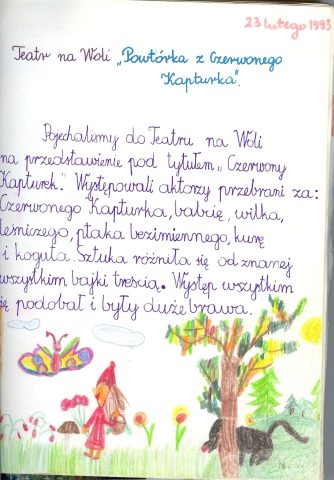 23 lutego 1993
Teatr na Woli „Powtórka z Czerwonego
Kapturka".
Pojechaliśmy do Teatru na Woli
na przedstawienie pod tytułem „Czerwony
Kapturek." Występowali aktorzy przebrani za:
Czerwonego Kapturka, babcię, wilka,
leśniczego, ptaka bezimiennego, kurę
i koguta. Sztuka różniła się od znanej
wszystkim bajki treścią. Występ wszystkim
się podobał i były duże brawa.